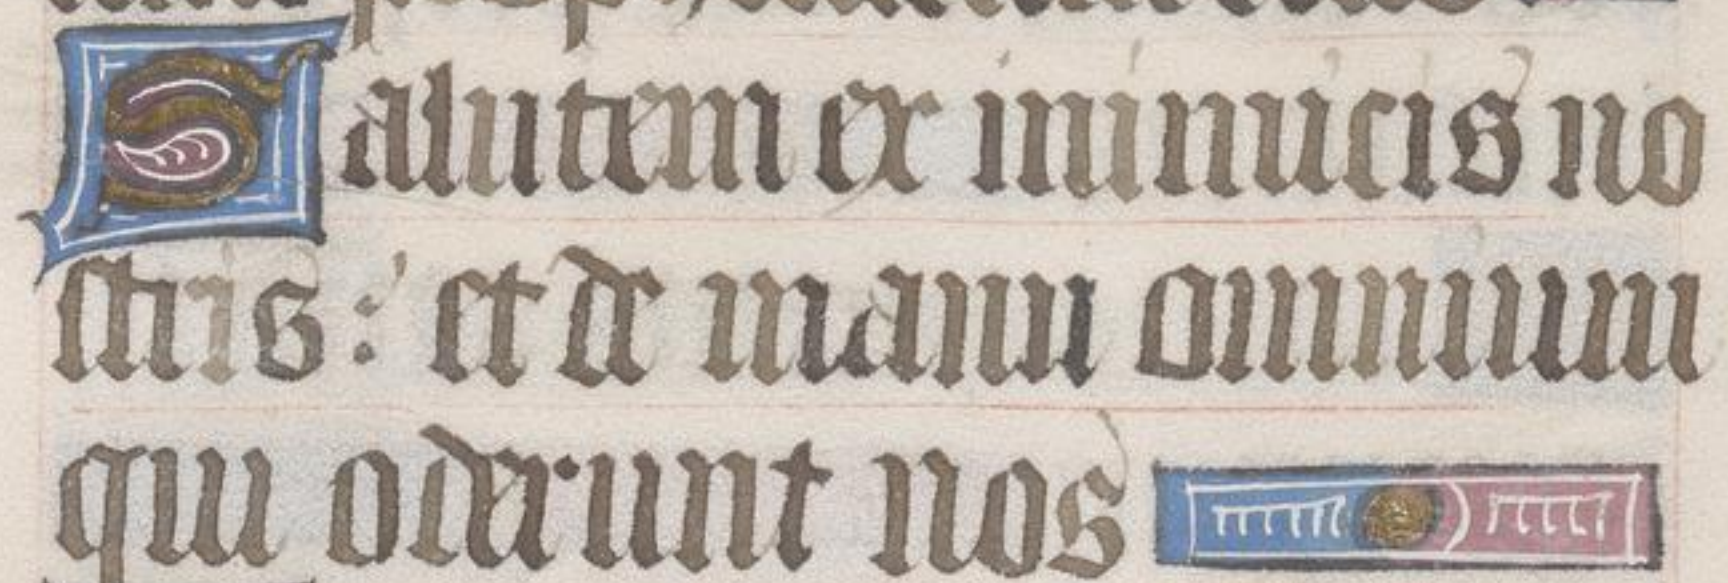 Salutem ex inimicis no
stris: et de manu omnium
qui oderunt nos